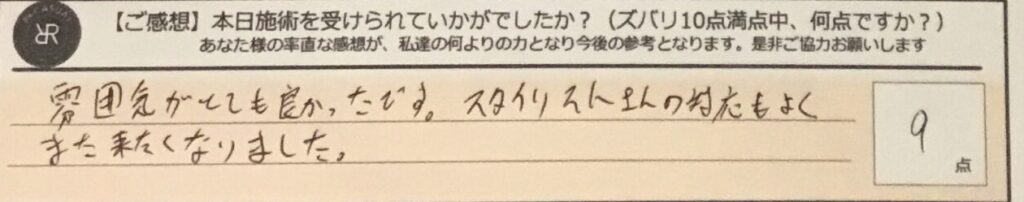 【ご感想】本日施術を受けられていかがでしたか？（ズバリ10点満点中、何点ですか？）
あなた様の率直な感想が、私達の何よりの力となり今後の参考となります。是非ご協力お願いします
雰囲気がとても良かったです。スタイリストさんの対応もよく
また来たくなりました。
9
点